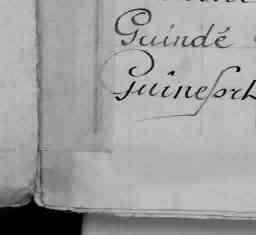 Guindé
Guinefort